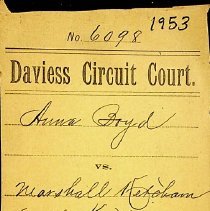 1953
No. 6098
Daviess Circuit Court.
Anna Boyd
vs.
Marshall Ketcham